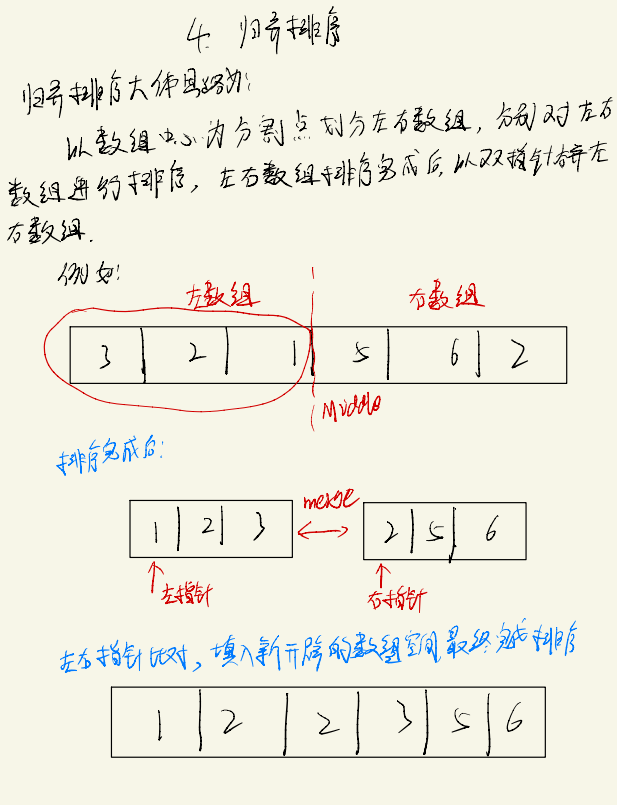 4. 归并排序
归并排序大体思路为:
以数组中心为分割点划分左右数组,分别对左右
数组进行排序,左右数组排序完成后,以双指针合并左
右数组.
例如:
左数组 右数组
3 2 1 5 6 2
Middle
排序完成后:
merge
1 2 3 2 5 6
左指针 右指针
左右指针比对,填入新开辟的数组空间,最终完成排序
1 2 2 3 5 6